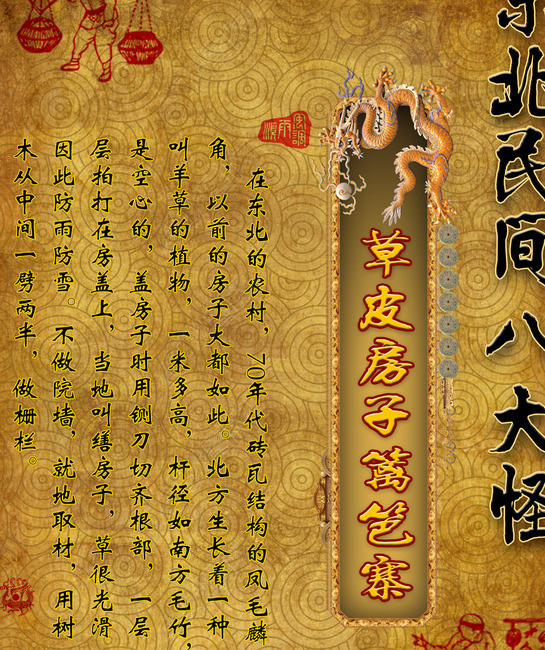 东北民间八大怪
草皮房子篱笆寨
风调雨顺
在东北的农村，70年代砖瓦结构的凤毛麟
角，以前的房子大都如此。北方生长着一种
叫羊草的植物，一米多高，杆径如南方毛竹，
是空心的，盖房子时用铡刀切齐根部，一层
层拍打在房盖上，当地叫缮房子，草很光滑
因此防雨防雪。不做院墙，就地取材，用树
木从中间一劈两半，做栅栏。